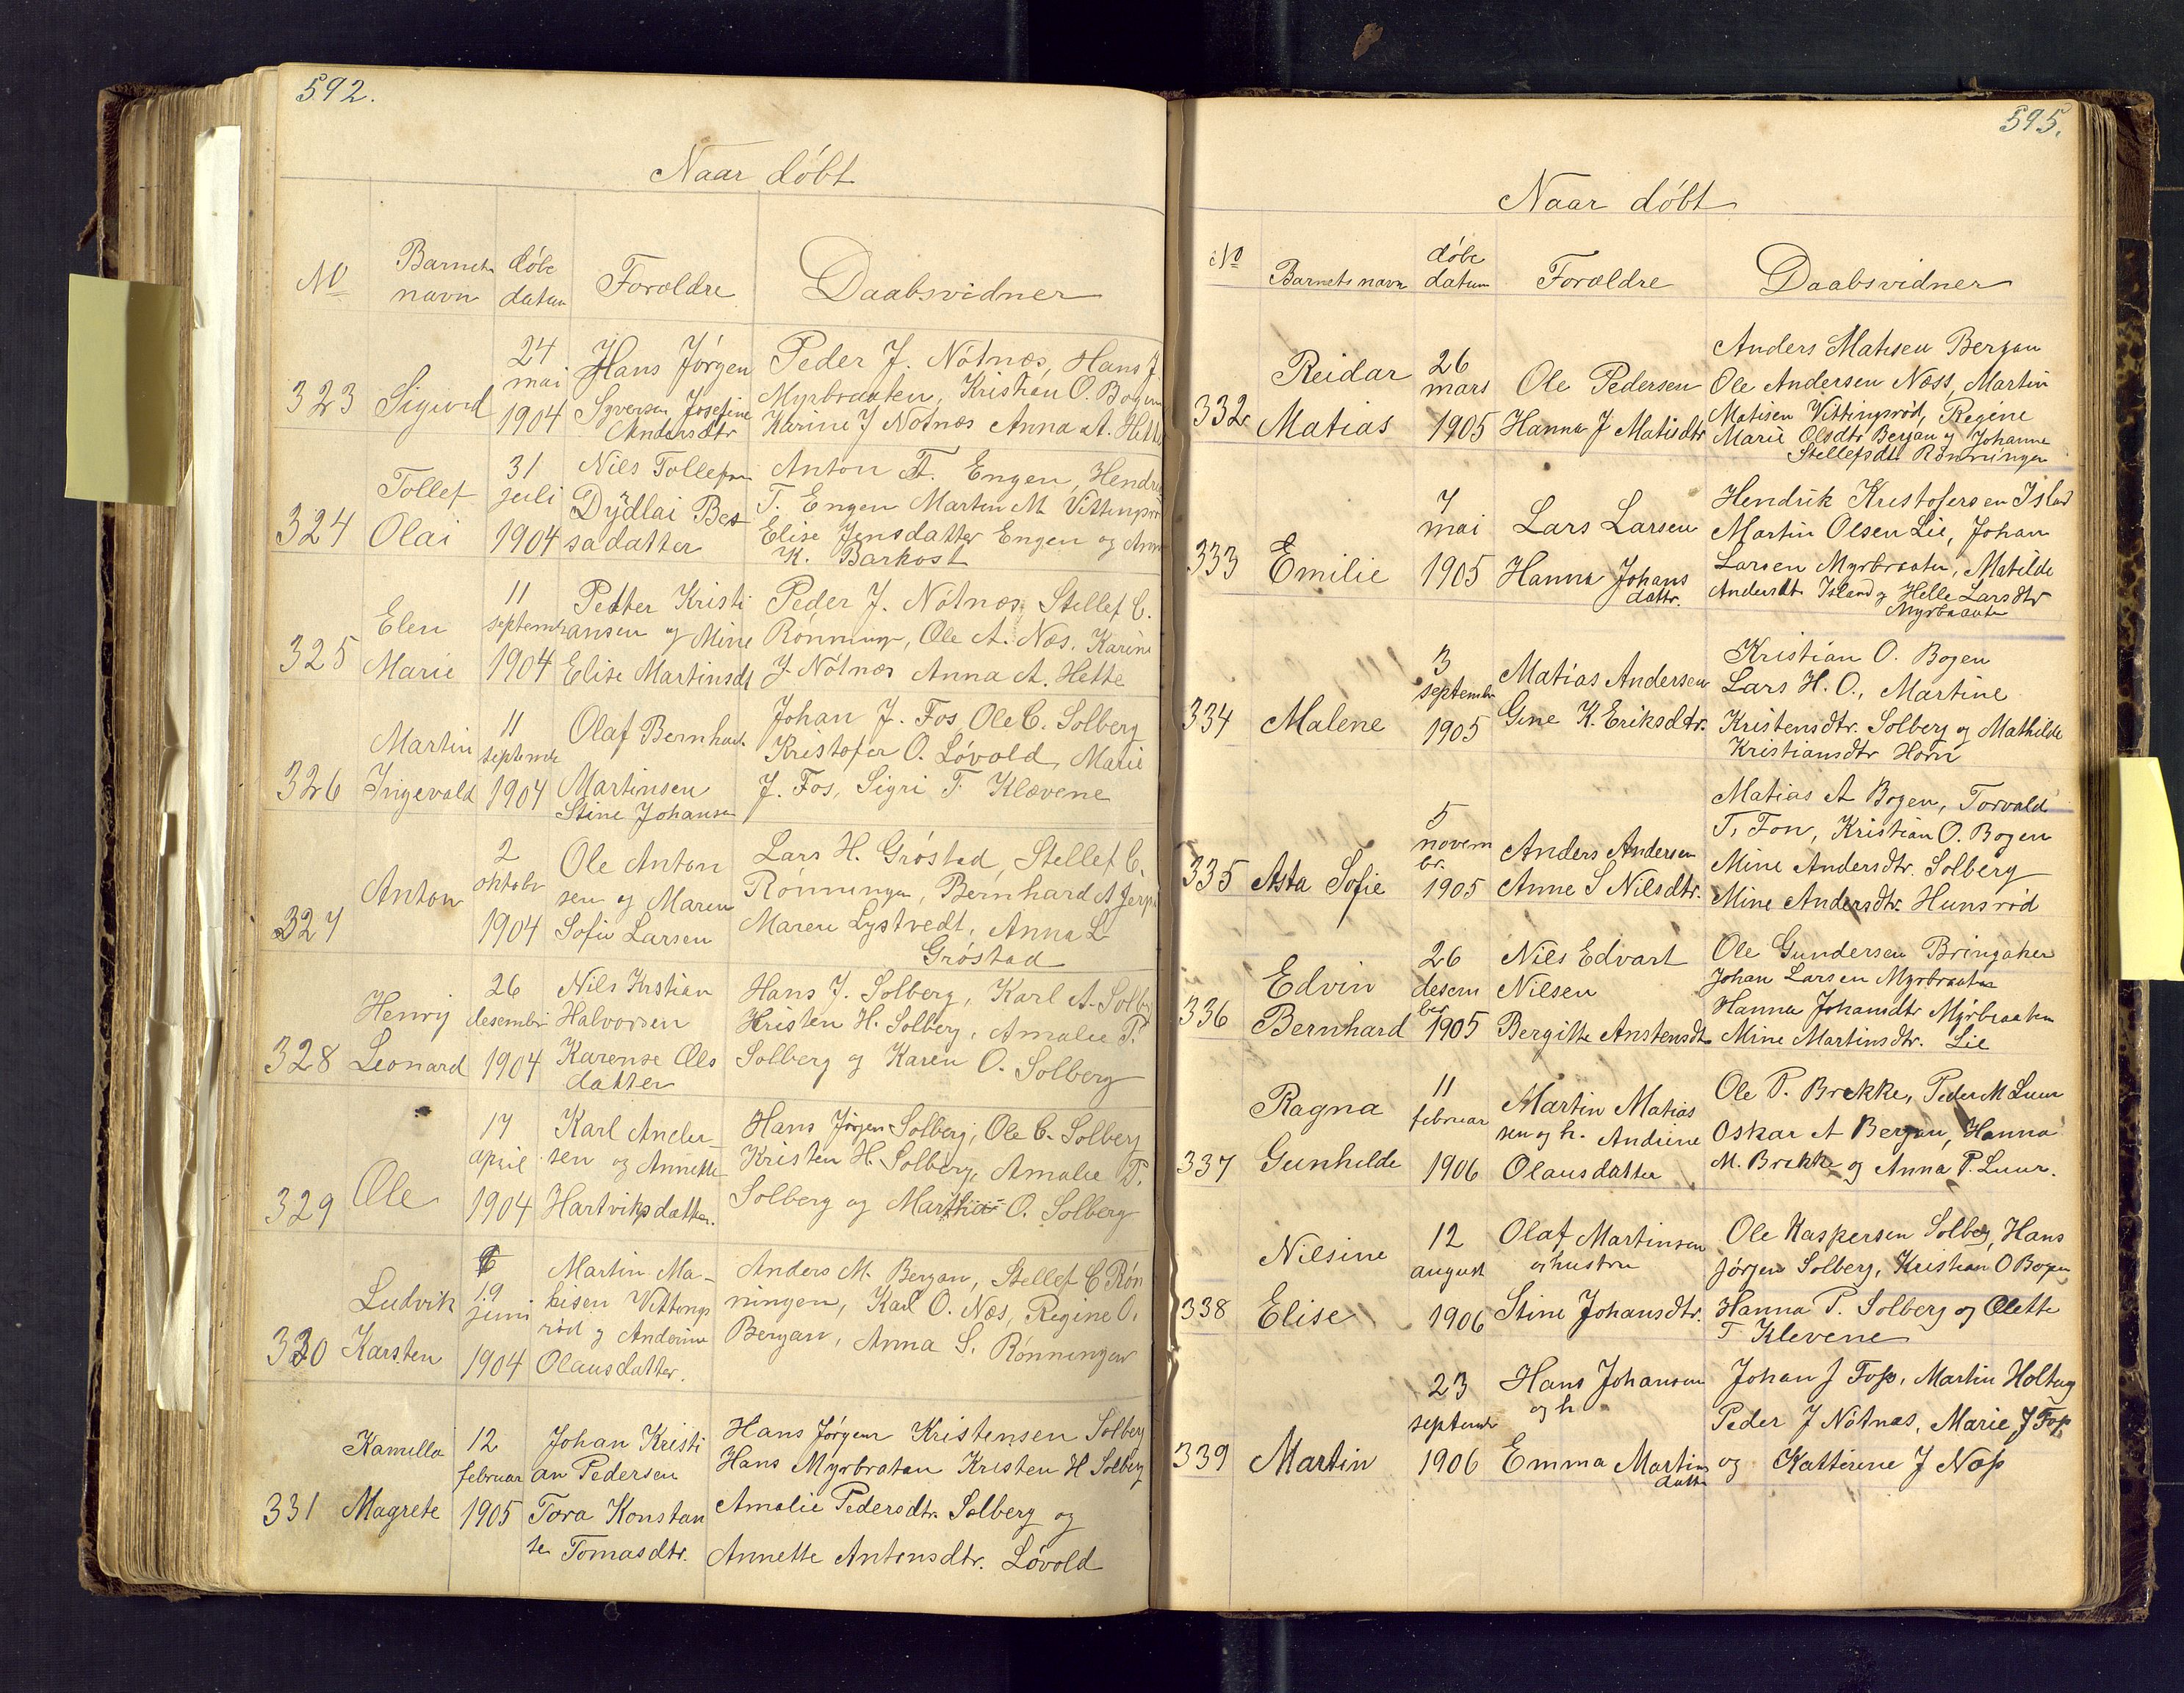 592.
Naar döbt
No Barnets navn döbe datum Forældre Daabsvidner
24 Hans Jörgen Peder J. Nötnæs, Hans J
mai Myrbraaten, Kristian O. Bogen
323 Sigurd 1904 Syversen Josefine Karine J Nötnæs Anna A. Hette
Andersdtr
31 Nils Tollefsen Anton T. Engen, Hendrik
Tollef juli Dÿdlai Bes T. Engen Martin M Vittingsrö
324 Olai 1904 sadatter Elise Jensdatter Engen og Anna
K. Barkost
11 Petter Kristi Peder J. Nötnæs, Stellef C.
Elen septembr ansen og Mine Rönninge, Ole A. Næs. Karine
325 Marie 1904 Elise Martinsdt J. Nötnæs Anna A. Hette
Johan J. Fos, Ole C. Solberg
Martin 11 Olaf Bernhard Kristofer O. Lövold, Marie
septembr
326 Ingevald 1904 Martinsen J. Fos, Sigri T. Klævene
Stine Johansen
2 Ole Anton Lars H. Gröstad, Stellef C.
Anton oktobr sen og Maren Rönningen, Bernhard A Jerp
327 1904 Sofie Larsen Maren Lystvedt, Anna L
Gröstad
26 Nils Krstian Hans J. Solberg, Karl A. Solbg
Henrij desembr Halvorsen Kristen H. Solberg, Amalie P.
328 Leonard 1904 Karense Ols Solberg og Karen O. Solberg
datter
17 Karl Ander Hans Jörgen Solberg, Ole C. Solberg
april sen og Annette Kristen H. Solberg, Amalie P.
329 Ole 1904 Hartviksdatter. Solberg og Marthia O. Solberg
Martin Ma- Anders M. Berjan, Stellef C Rön
Ludvik 19 tisen Vittings ningen, Karl O. Næs, Regine O.
juni röd og Andrine Berjan, Anna S. Rönningen
330 Karsten 1904 Olausdatter.
Kamilla 12 Johan Kristi Hans Jörgen Kristensen Solberg
februar an Pedersen Hans Myrbraten Kristen H Solberg
331 Magrete 1905 Tora Konstan Amalie Pedersdtr. Solberg og
se Tomasdtr. Annette Antonsdtr. Lövold
595.
Naar döbt
No Barnets navn döbe datum Forældre Daabsvidner
Anders Matisen Berjan
Reidar 26 mars Ole Pedersen Ole Andersen Næss, Martin
332 Matias 1905 Hanna J Matisdtr Matisen Vittingsröd, Regine
Marie Olsdtr Berjan og Johanne
Stellefsdt. Rönningen
7 Hendrik Kristofersen Island
mai Lars Larsen Martin Olsen Lie, Johan
333 Emilie 1905 Hanna Johans Larsen Myrbraaten, Matilde
dattr. Andersdt. Island og Helle Larsdtr
Myrbraaten
3 Kristian O. Bogen
septembr Matias Andersen Lars H. O., Martine
334 Malene 1905 Gine K. Eriksdtr. Kristensdtr. Solberg og Mathilde
Kristiansdtr Horn
5 Matias A Bogen, Torvald
novem T. Fon, Kristian O. Bogen
br. Anders Andersen Mine Andersdtr. Solberg
335 Asta Sofie 1905 Anne S Nilsdtr. Mine Andersdtr. Hunsröd
26 Nils Edvart Ole Gundersen Bringaker
Edvin desem Nilsen Johan Larsen Myrbraaten
br Hanna Johansdtr Myrbraaten
336 Bernhard 1905 Bergitte Anstensdt. Mine Martinsdtr. Lie
11 Ole P. Brekke, Peder M Luur
Ragna februar Martin Matias Oskar A Berjan, Hanna
sen og h. Andrine
337 Gunhilde 1906 Olausdatter M. Brekke og Anna P. Luur.
12 Olaf Martinsen Ole Kaspersen Solberg, Hans
Nilsine august oghustru Jörgen Solberg, Kristian O Bogen
338 Elise 1906 Stine Johansdtr. Hanna P. Solberg og Olette
T Klevene
23 Hans Johansen Johan J Foss, Martin Holtung
septembr og h Peder J Nötnæs, Marie J Foss
339 Martin 1906 Emma Martins og Katterine J Næss
dattr